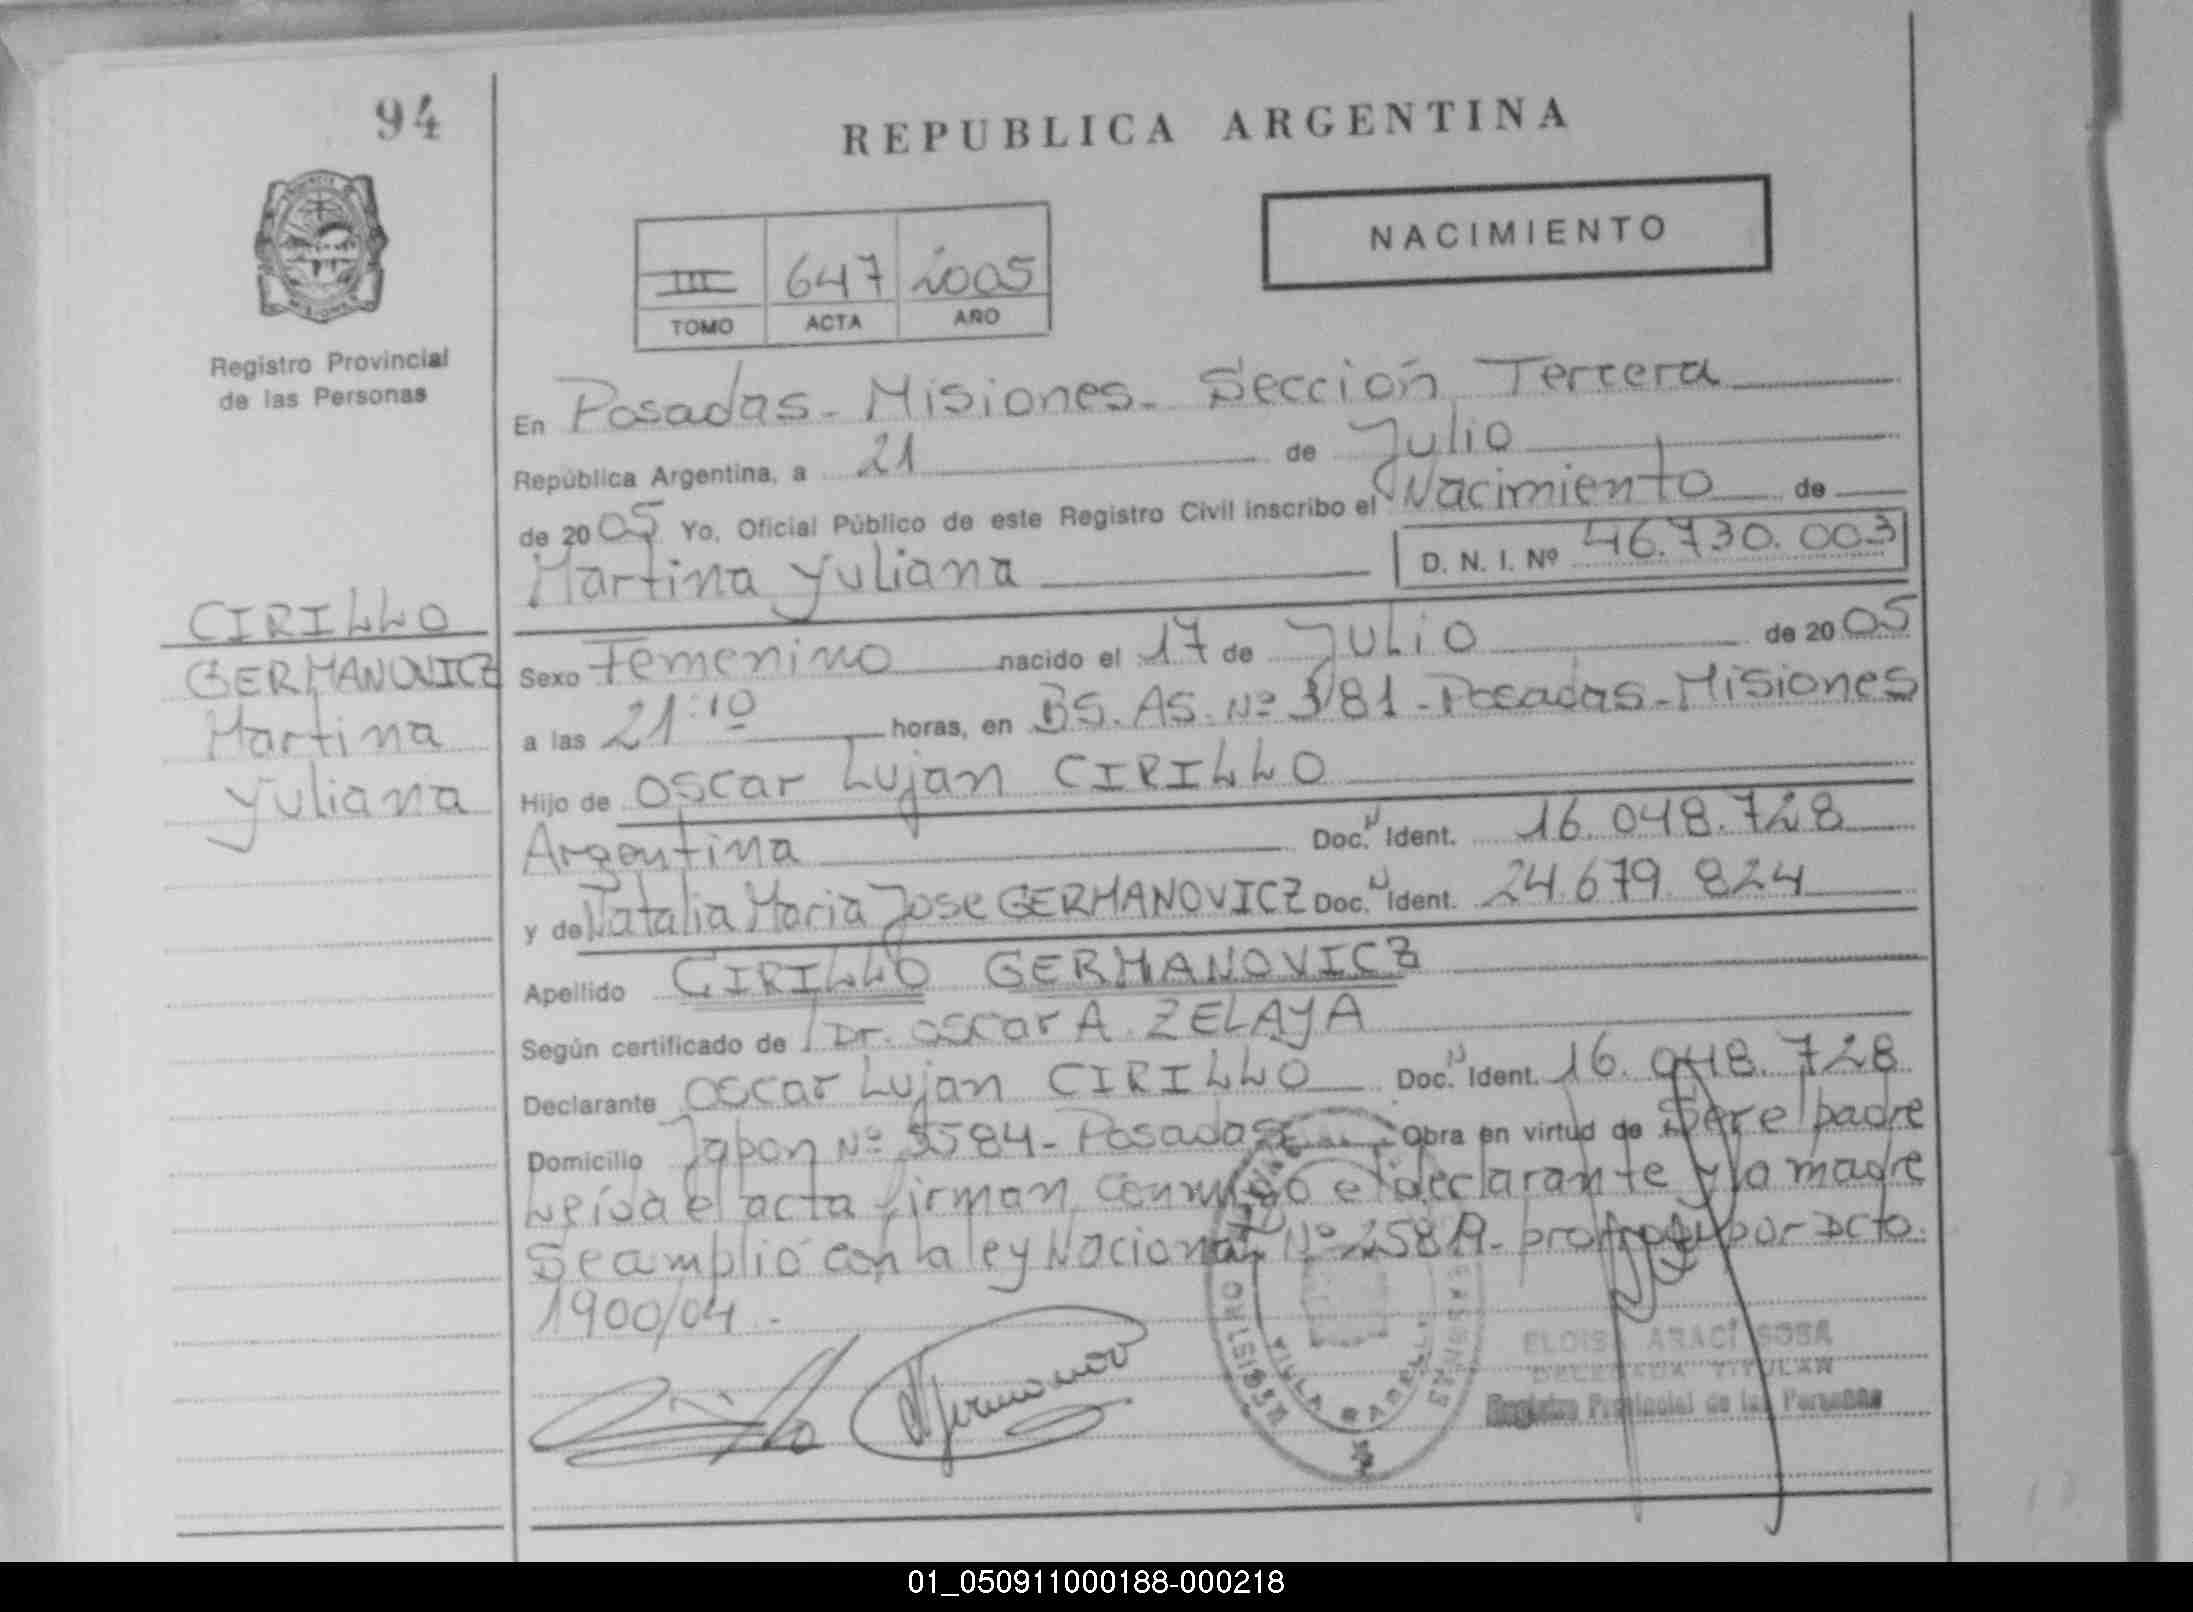 94
REPUBLICA ARGENTINA
NACIMIENTO
III 647 2005
TOMO ACTA AÑO
Registro Provincial
de las Personas
En Posadas - Misiones - Sección Tercera
República Argentina, a 21 de Julio
de 2005 Yo, Oficial Público de este Registro Civil inscribo el Nacimiento de
Martina Yuliana D. N. I. Nº 46.730.003
CIRILLO
GERMANOVICZ
Martina
Yuliana
Sexo Femenino nacido el 17 de Julio de 2005
a las 21:10 horas, en BS. AS. Nº 81 - Posadas - Misiones
Hijo de Oscar Lujan CIRILLO
Argentina Doc. N Ident. 16.048.728
y de Natalia Maria Jose GERMANOVICZ Doc. N Ident. 24.679.824
Apellido CIRILLO GERMANOVICZ
Según certificado de Dr. Oscar A. ZELAYA
Declarante Oscar Lujan CIRILLO Doc. N Ident. 16.048.728
Domicilio Japon Nº 5584 - Posadas Obra en virtud de Ser el padre
Leída el acta firman conmigo el declarante y la madre
Se amplió con la ley Nacional Nº por Dcto.
1900/04.-
REGISTRO
VILLA SARELLI
ELOISA ARACI SOSA
DELEGADA TITULAR
Registro Provincial de las Personas
01_050911000188-000218